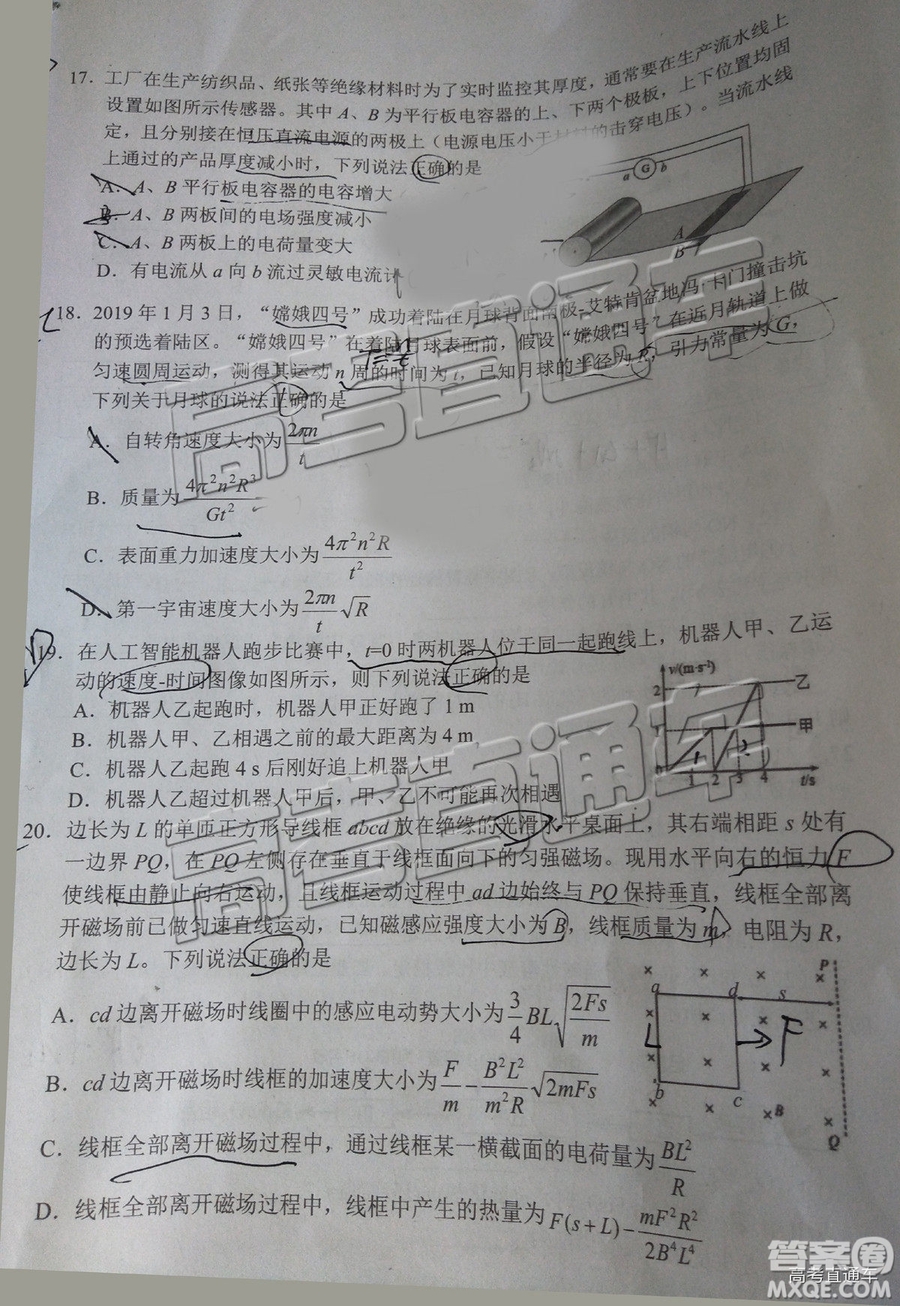 17．工厂在生产纺织品、纸张等绝缘材料时为了实时监控其厚度，通常要在生产流水线上
设置如图所示传感器。其中 A、B 为平行板电容器的上、下两个极板，上下位置均固
定，且分别接在恒压直流电源的两极上（电源电压小于材料的击穿电压）。当流水线
上通过的产品厚度减小时，下列说法正确的是
A．A、B 平行板电容器的电容增大
B．A、B 两板间的电场强度减小
C．A、B 两板上的电荷量变大
D．有电流从 a 向 b 流过灵敏电流计
a G b
A
B
18．2019 年 1 月 3 日，“嫦娥四号”成功着陆在月球背面南极-艾特肯盆地冯·卡门撞击坑
的预选着陆区。“嫦娥四号”在着陆月球表面前，假设“嫦娥四号”在近月轨道上做
匀速圆周运动，测得其运动 n 周的时间为 t，已知月球的半径为 R，引力常量为 G，
下列关于月球的说法正确的是
A．自转角速度大小为 2πn/t
B．质量为 4π²n²R³/Gt²
C．表面重力加速度大小为 4π²n²R/t²
D．第一宇宙速度大小为 2πn/t √R
19．在人工智能机器人跑步比赛中，t=0 时两机器人位于同一起跑线上，机器人甲、乙运
动的速度-时间图像如图所示，则下列说法正确的是
A．机器人乙起跑时，机器人甲正好跑了 1 m
B．机器人甲、乙相遇之前的最大距离为 4 m
C．机器人乙起跑 4 s 后刚好追上机器人甲
D．机器人乙超过机器人甲后，甲、乙不可能再次相遇
v/(m·s⁻¹)
2 乙
1 甲
1 2 3 4 t/s
20．边长为 L 的单匝正方形导线框 abcd 放在绝缘的光滑水平桌面上，其右端相距 s 处有
一边界 PQ，在 PQ 左侧存在垂直于线框面向下的匀强磁场。现用水平向右的恒力 F
使线框由静止向右运动，且线框运动过程中 ad 边始终与 PQ 保持垂直，线框全部离
开磁场前已做匀速直线运动，已知磁感应强度大小为 B，线框质量为 m，电阻为 R，
边长为 L。下列说法正确的是
A．cd 边离开磁场时线圈中的感应电动势大小为 3/4 BL√(2Fs/m)
B．cd 边离开磁场时线框的加速度大小为 F/m − B²L²/m²R √2mFs
C．线框全部离开磁场过程中，通过线框某一横截面的电荷量为 BL²/R
D．线框全部离开磁场过程中，线框中产生的热量为 F(s+L) − mF²R²/2B⁴L⁴
P
a d s
L F
b c
B
Q
高考直通车
高考直通车
答案圈
高考直通车
MXQE.COM